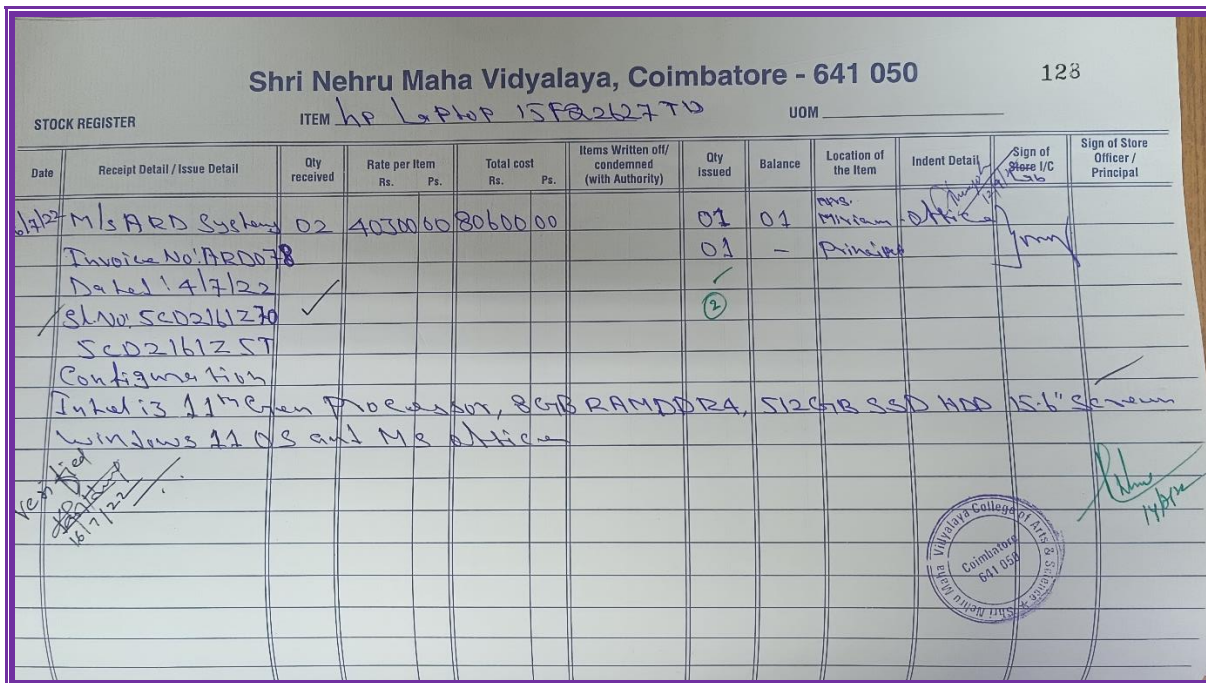 Shri Nehru Maha Vidyalaya, Coimbatore - 641 050
128
STOCK REGISTER ITEM hp Laptop 15FQ2627TU UOM
Date Receipt Detail / Issue Detail Qty received Rate per Item Rs. Ps. Total cost Rs. Ps. Items Written off/ condemned (with Authority) Qty issued Balance Location of the Item Indent Detail Sign of Store I/C Sign of Store Officer / Principal
M/s ARD Systems 02 40300 00 80600 00 01 01 Mrs. Miriam Office
Invoice No: ARD078 01 - Principal
Dated: 4/7/22
Sl.No: 5CD2161Z70 2
5CD2161Z5T
Configuration
Intel i3 11th Gen Processor, 8GB RAM DDR4, 512GB SSD HDD 15.6" Screen
Windows 11 OS and MS Office
Verified
16/7/22
Shri Nehru Maha Vidyalaya College of Arts & Science
Coimbatore
641 050